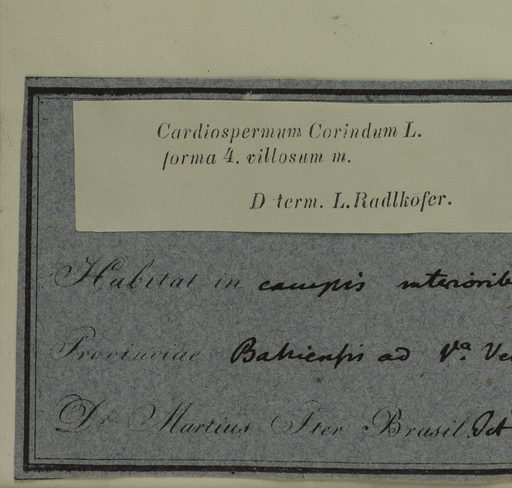 Cardiospermum Corindum L.
forma 4. villosum m.
D term. L. Radlkofer.
Habitat in campis interiorib
Provinciae Bahiensis ad Va. Ve
Dr. Martius Iter Brasil. Oct